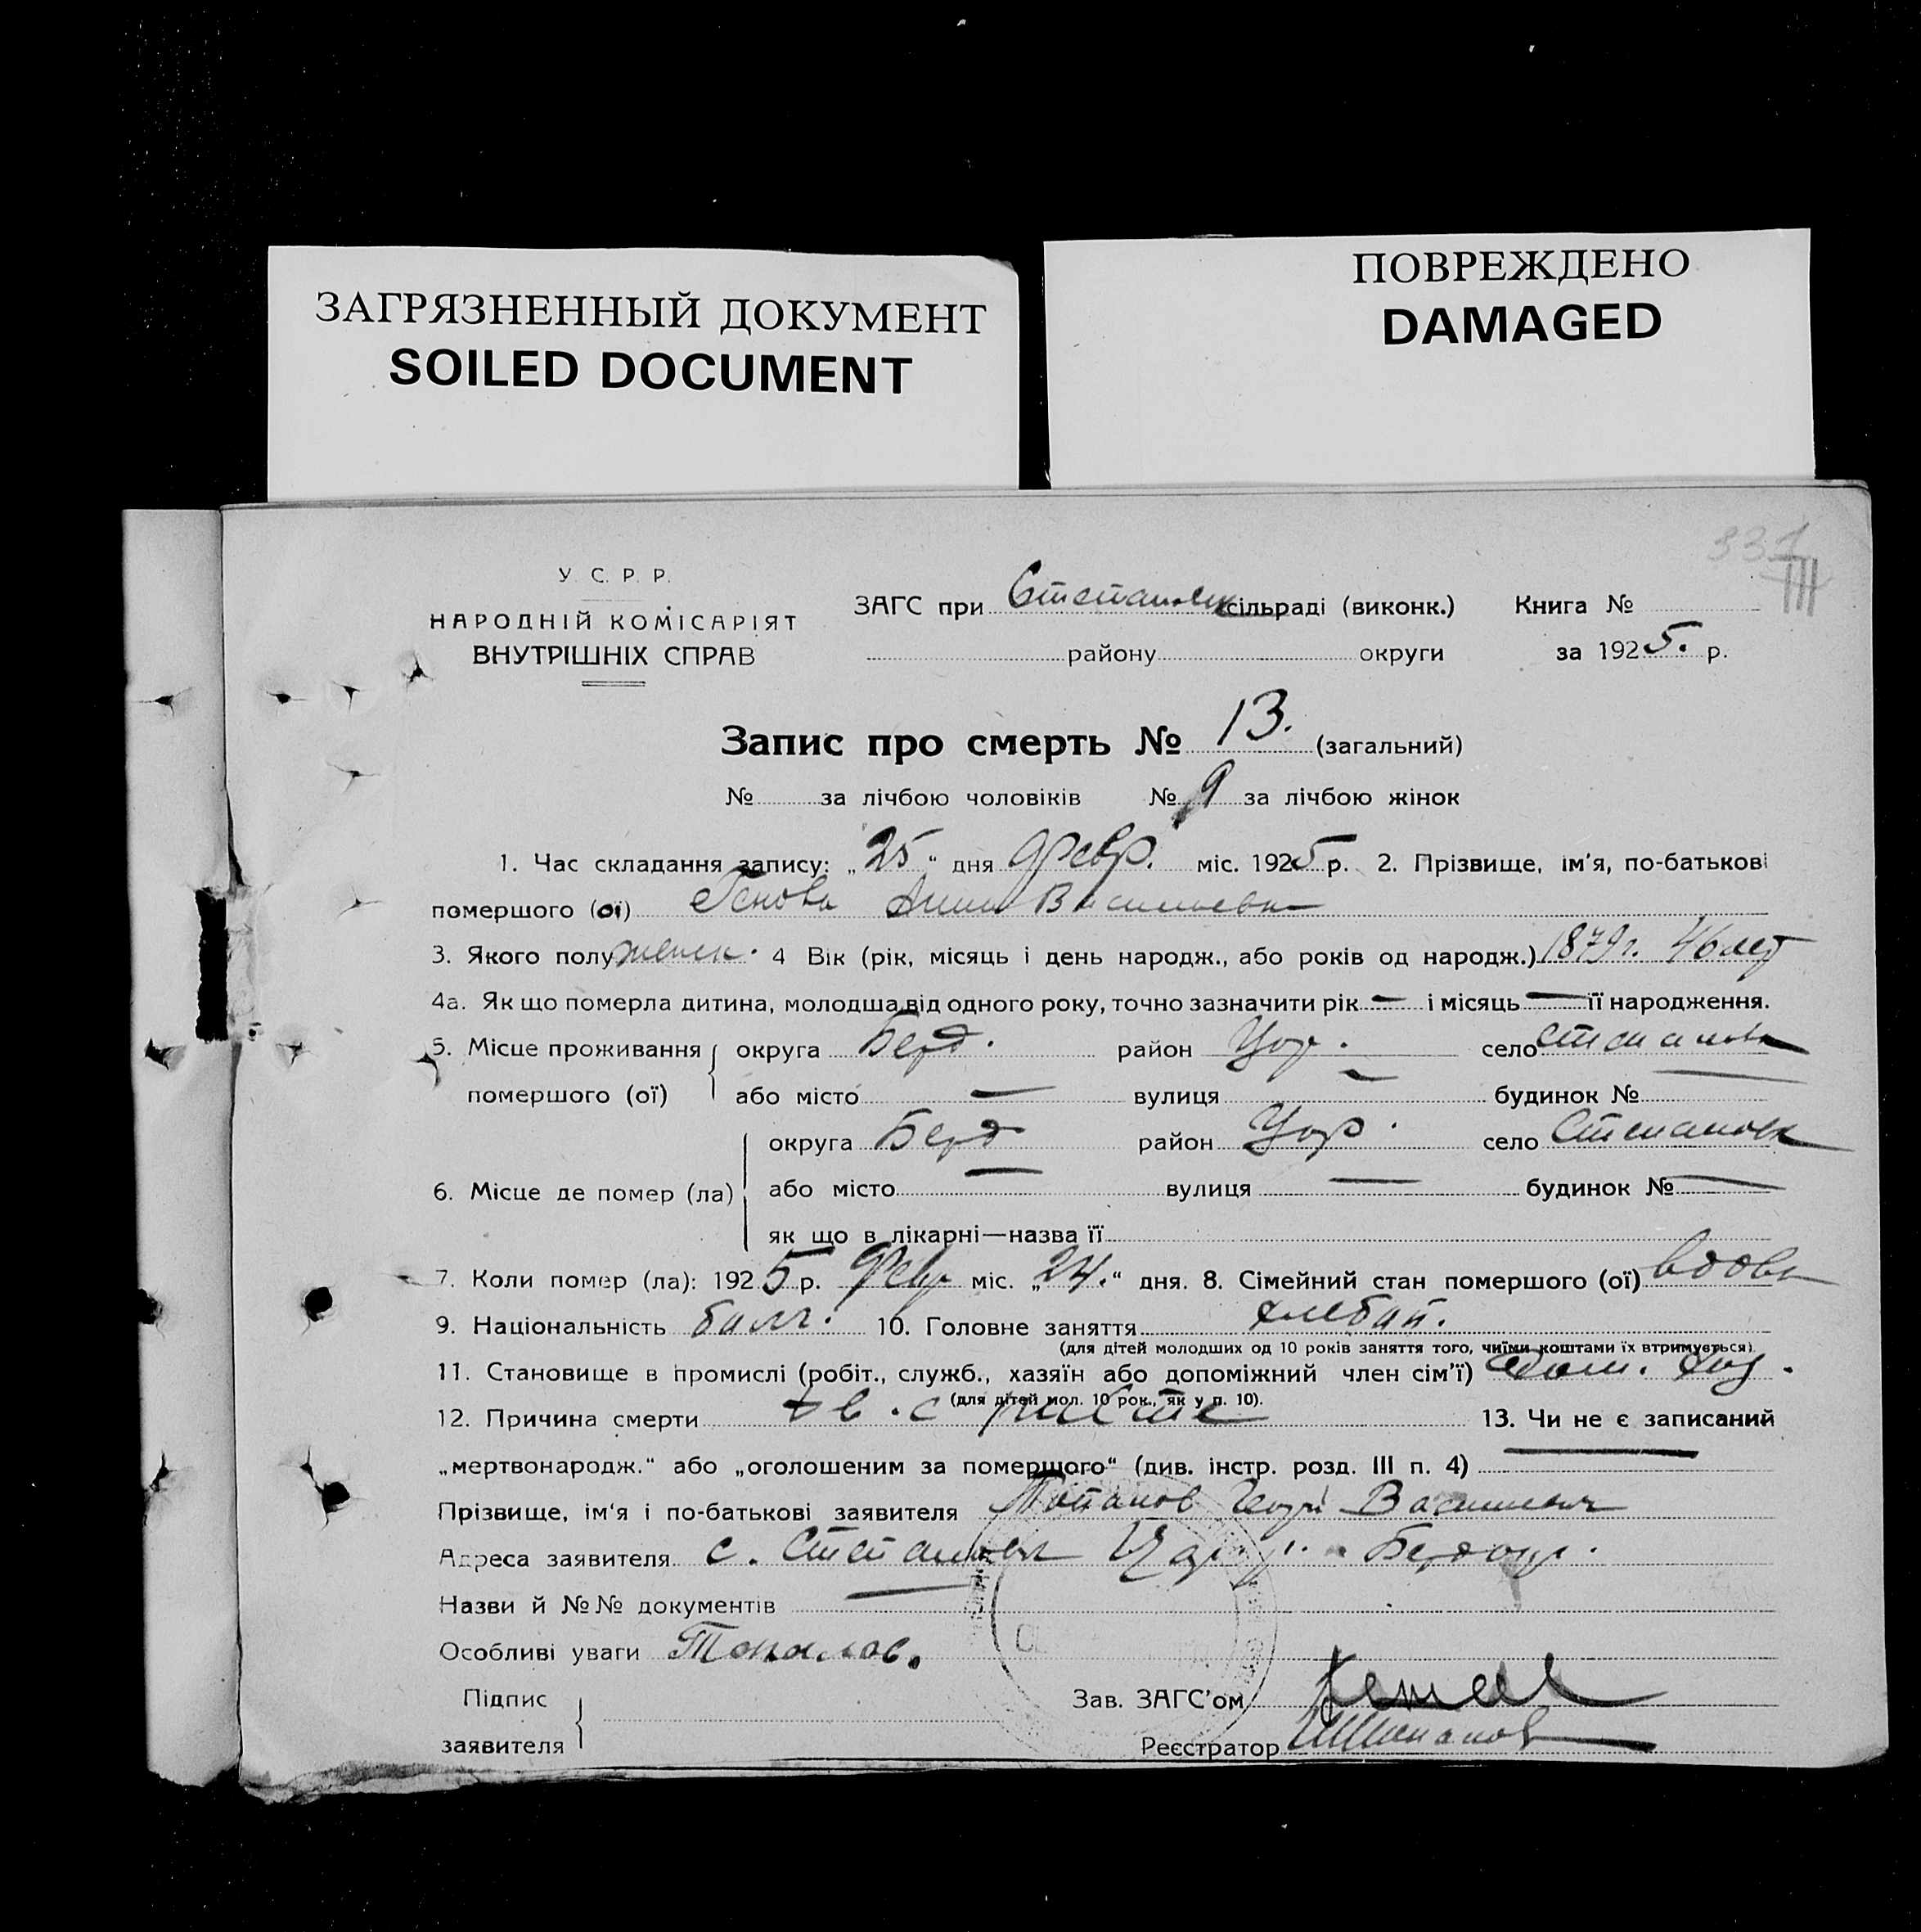 ЗАГРЯЗНЕННЫЙ ДОКУМЕНТ
SOILED DOCUMENT
ПОВРЕЖДЕНО
DAMAGED
У. С. Р. Р.
НАРОДНІЙ КОМІСАРІЯТ
ВНУТРІШНІХ СПРАВ
ЗАГС при сільраді (виконк.) Книга №
району округи за 1925. р.
Запис про смерть № 13. (загальний)
№ за лічбою чоловіків № 9 за лічбою жінок
1. Час складання запису: „25“ дня февр. міс. 1925 р. 2. Прізвище, ім'я, по-батькові
помершого (ої) Васильевна
3. Якого полу женск. 4 Вік (рік, місяць і день народж., або років од народж.) 1879 г. 46 лет
4а. Як що померла дитина, молодша від одного року, точно зазначити рік — і місяць — її народження.
5. Місце проживання округа Берд. район Цар. село Степановка
помершого (ої) або місто — вулиця — будинок № —
округа Берд район Цар. село Степановка
6. Місце де помер (ла) або місто — вулиця — будинок № —
як що в лікарні—назва її
7. Коли помер (ла): 1925 р. Февр міс. „24.“ дня. 8. Сімейний стан помершого (ої) вдова
9. Національність болг. 10. Головне заняття хлебоп.
(для дітей молодших од 10 років заняття того, чиїми коштами їх втримується)
11. Становище в промислі (робіт., служб., хазяїн або допоміжний член сім'ї) дом. хоз.
(для дітей мол. 10 рок., як у п. 10).
12. Причина смерти 13. Чи не є записаний
„мертвонародж.“ або „оголошеним за померщого“ (див. інстр. розд. III п. 4) —
Прізвище, ім'я і по-батькові заявителя Васильевич
Адреса заявителя с. Степановка Цар. Берд окр.
Назви й №№ документів —
Особливі уваги Топалов.
Підпис
заявителя
Зав. ЗАГС'ом
Реєстратор